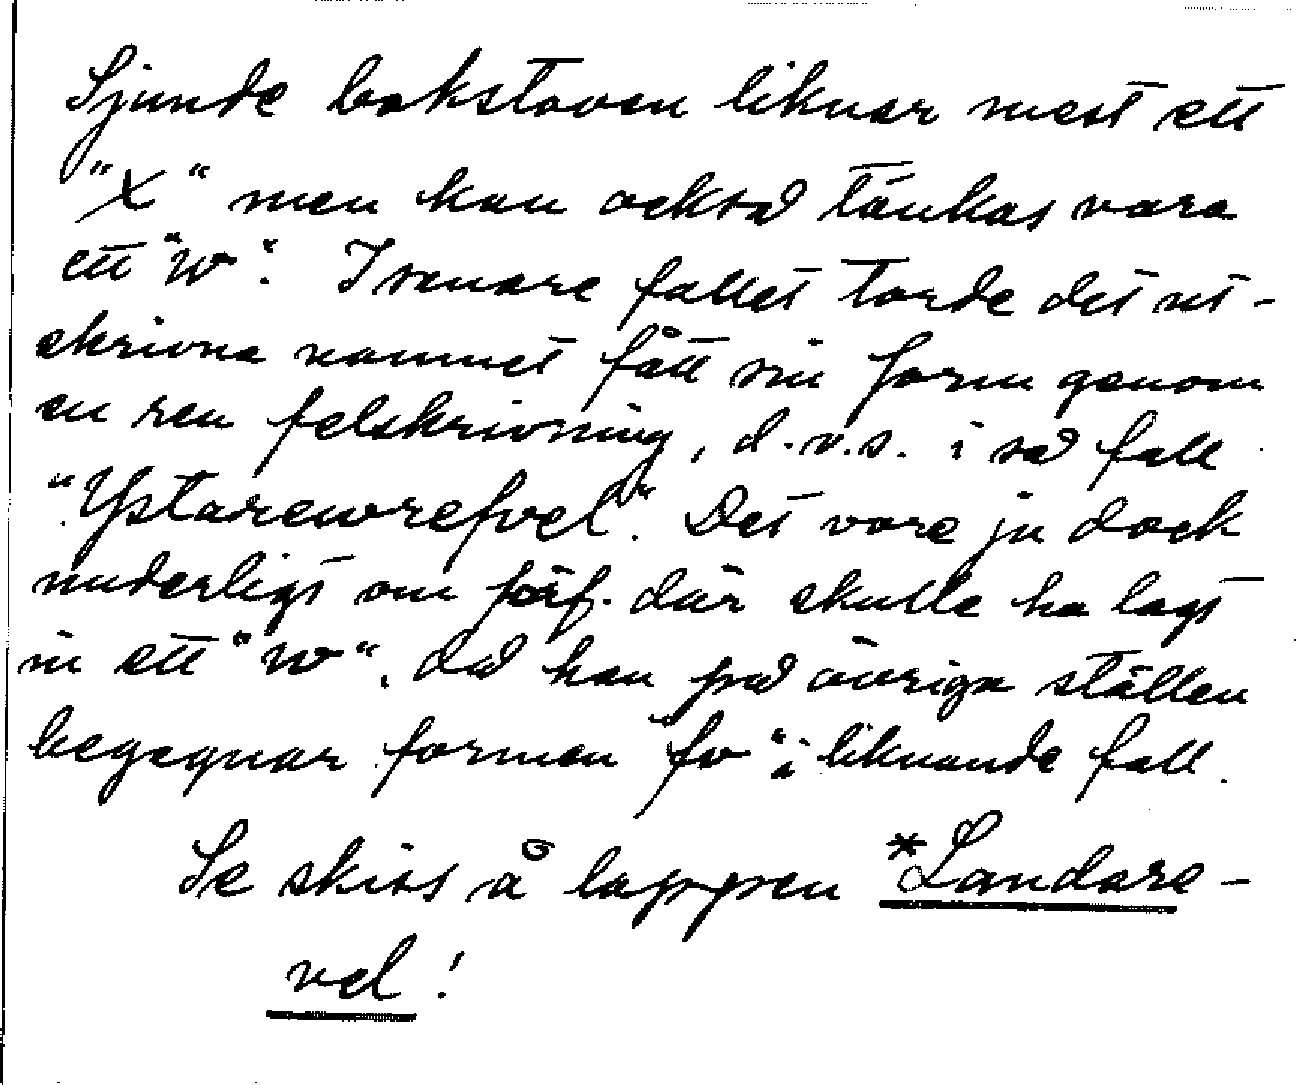 Sjunde bokstaven liknar mest ett
"X" men kan också tänkas vara
ett "W". I senare fallet torde det ut-
skrivna namnet fått sin form genom
en ren felskrivning, d.v.s. i så fall
"Ystarewrefvel". Det vore ju dock
underligt om förf. där skulle ha lagt
in ett "W", då han på övriga ställen
begagnar formen "fv" i liknande fall.
Se skiss å lappen *Landare-
vel!